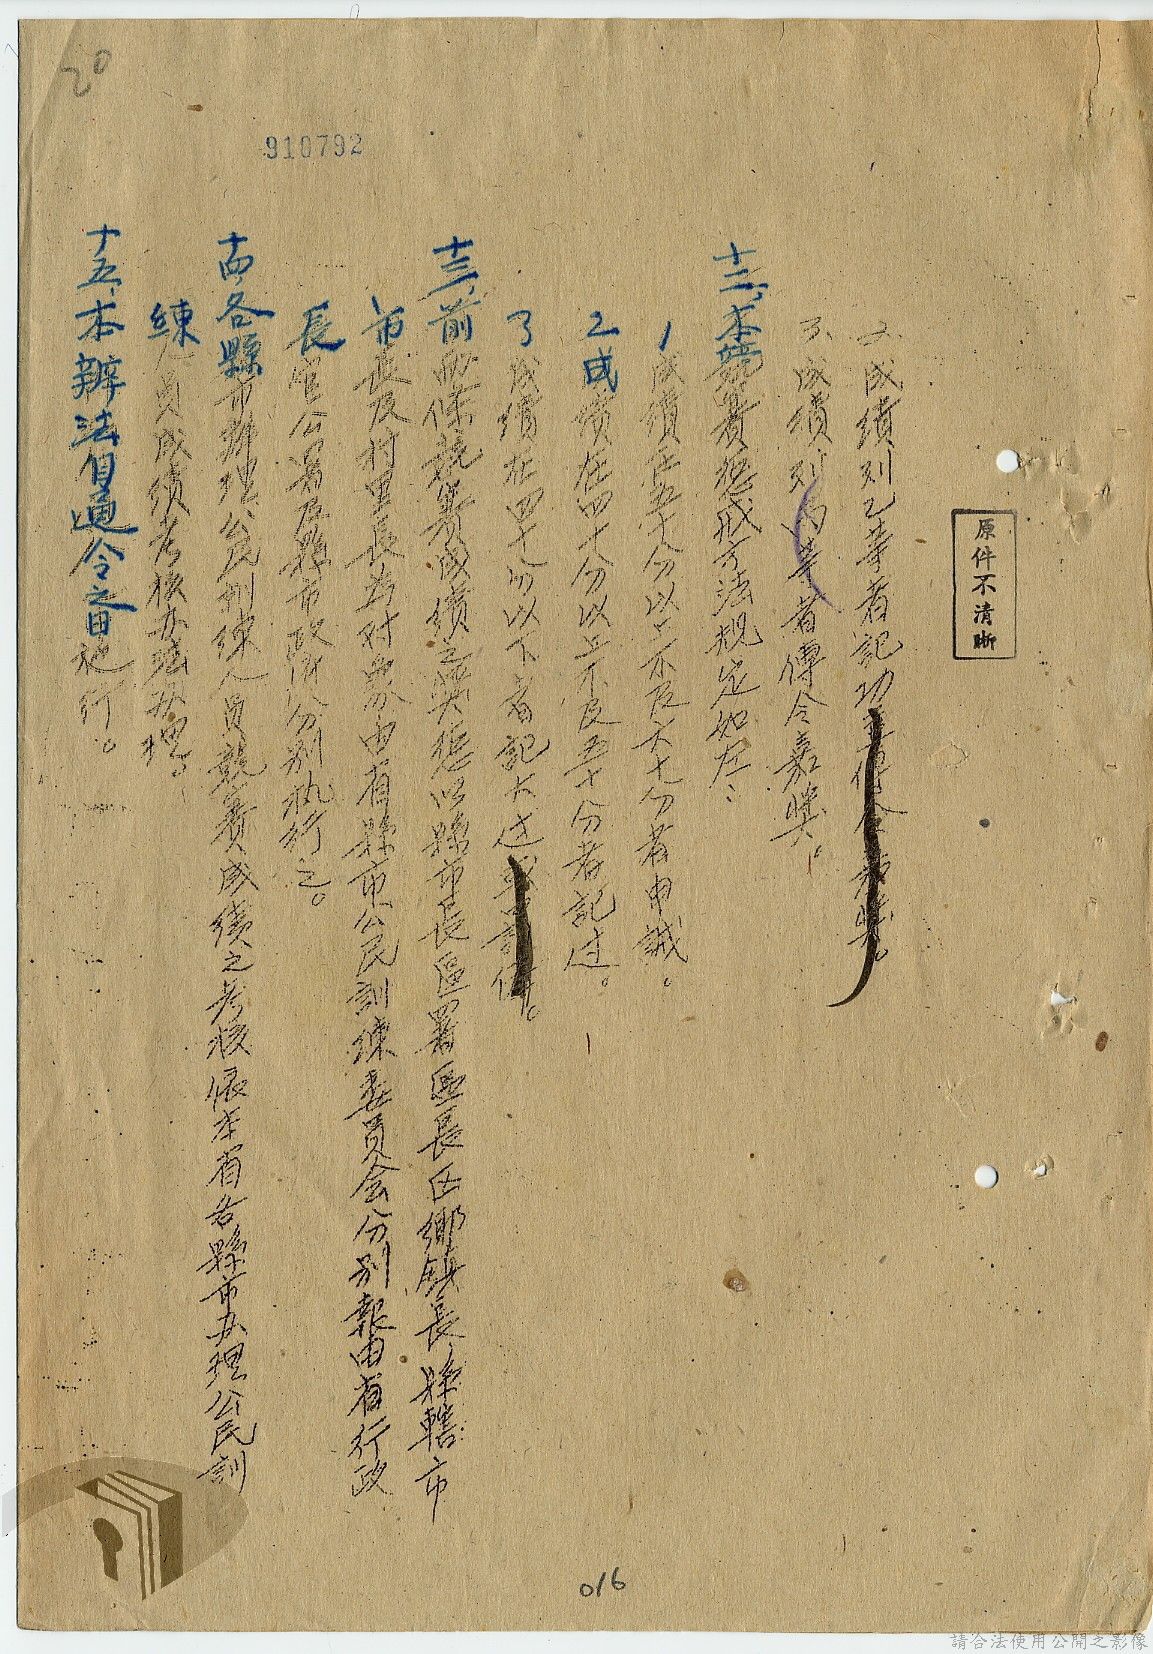 原件不清晰
2.成績列乙等者記功並傳令嘉獎。
3.成績列丙等者傳令嘉獎。
十二、本競賽懲戒方法規定如左：
1成績在五十分以上不及六十分者申誡。
2成績在四十分以上不及五十分者記过。
3成績在四十分以下者記大过或
十三、前兩條競賽成績之獎懲以縣市長區署區長區鄉鎮長、縣轄市
市長及村里長為对象由省縣市公民訓練委員会分別報由省行政
長官公署及縣市政府分別执行之。
十四、各縣市辦理公民訓練人員競賽成績之考核依本省各縣市办理公民訓
練人員成績考核办法办理。
十五、本辦法自通令之日施行。
910792
20
016
請合法使用公開之影像